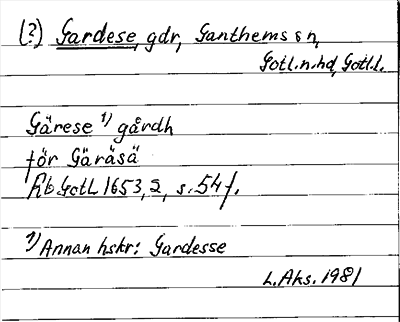 (?) Gardese, gdr, Ganthems sn,
Gotl.n.hd, Gotl.l.
Gärese 1) gårdh
för Gäräsä
Rb GotL 1653, 2, s. 54 f.
1) Annan hskr: Gardesse
L. Aks. 1981